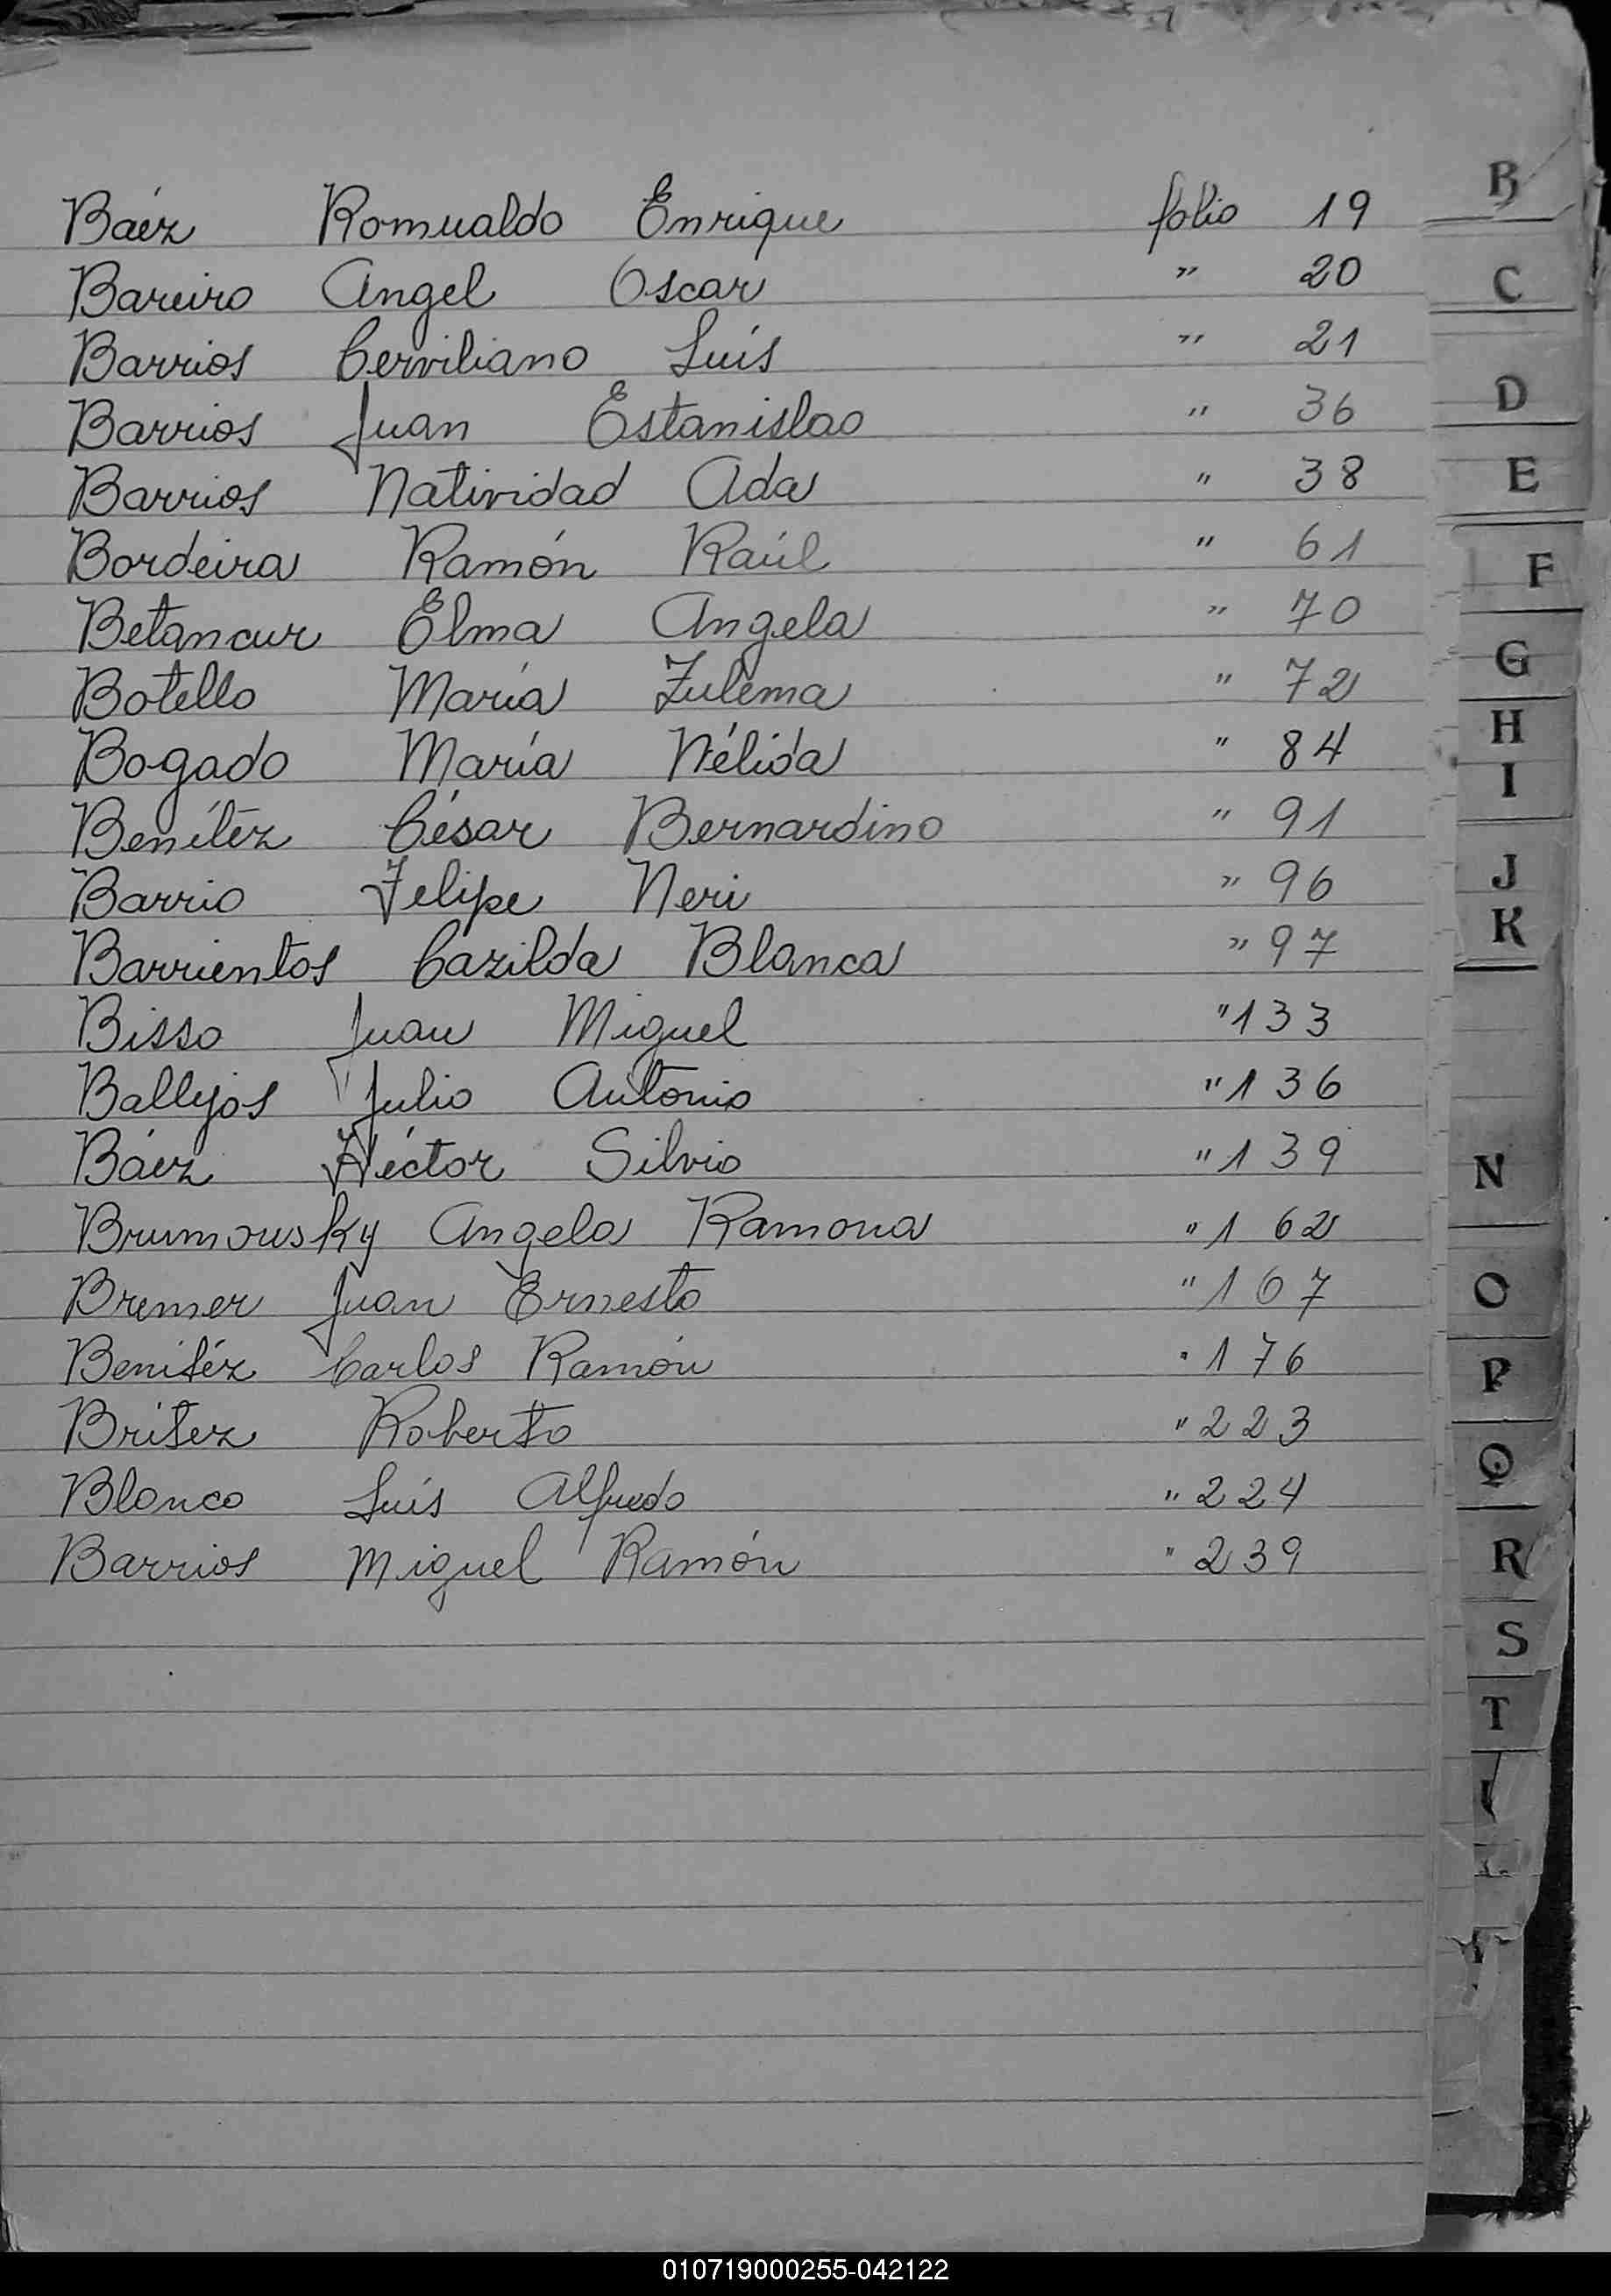 Baéz Romualdo Enrique folio 19
Bareiro Angel Oscar " 20
Barrios Cerviliano Luís " 21
Barrios Juan Estanislao " 36
Barrios Natividad Ada " 38
Bordeira Ramón Raúl " 61
Betancur Elma Angela " 70
Botello María Zulema " 72
Bogado María Nélida " 84
Benítez César Bernardino " 91
Barrio Felipe Neri " 96
Barrientos Cazilda Blanca " 97
Bisso Juan Miguel " 133
Ballejos Julio Antonio " 136
Báez Héctor Silvio " 139
Brumousky Angela Ramona " 162
Bremer Juan Ernesto " 167
Benitéz Carlos Ramón " 176
Britez Roberto " 223
Blanco Luís Alfredo " 224
Barrios Miguel Ramón " 239
B
C
D
E
F
G
H
I
J
K
N
O
P
Q
R
S
T
010719000255-042122